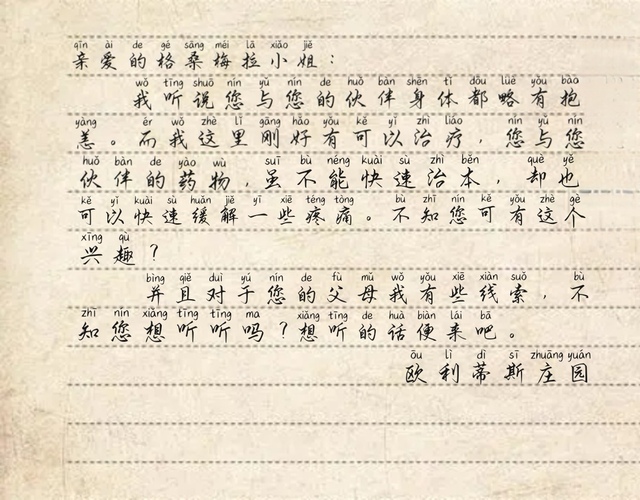 qīn ài de gé sāng méi lā xiǎo jiě
亲爱的格桑梅拉小姐：
wǒ tīng shuō nín yǔ nín de huǒ bàn shēn tǐ dōu lüè yǒu bào
我听说您与您的伙伴身体都略有抱
yàng ér wǒ zhè lǐ gāng hǎo yǒu kě yǐ zhì liáo nín yǔ nín
恙。而我这里刚好有可以治疗，您与您
huǒ bàn de yào wù suī bù néng kuài sù zhì běn què yě
伙伴的药物，虽不能快速治本，却也
kě yǐ kuài sù huǎn jiě yī xiē téng tòng bù zhī nín kě yǒu zhè gè
可以快速缓解一些疼痛。不知您可有这个
xìng qù
兴趣？
bìng qiě duì yú nín de fù mǔ wǒ yǒu xiē xiàn suǒ bù
并且对于您的父母我有些线索，不
zhī nín xiǎng tīng tīng ma xiǎng tīng de huà biàn lái bā
知您想听听吗？想听的话便来吧。
ōu lì dì sī zhuāng yuán
欧利蒂斯庄园